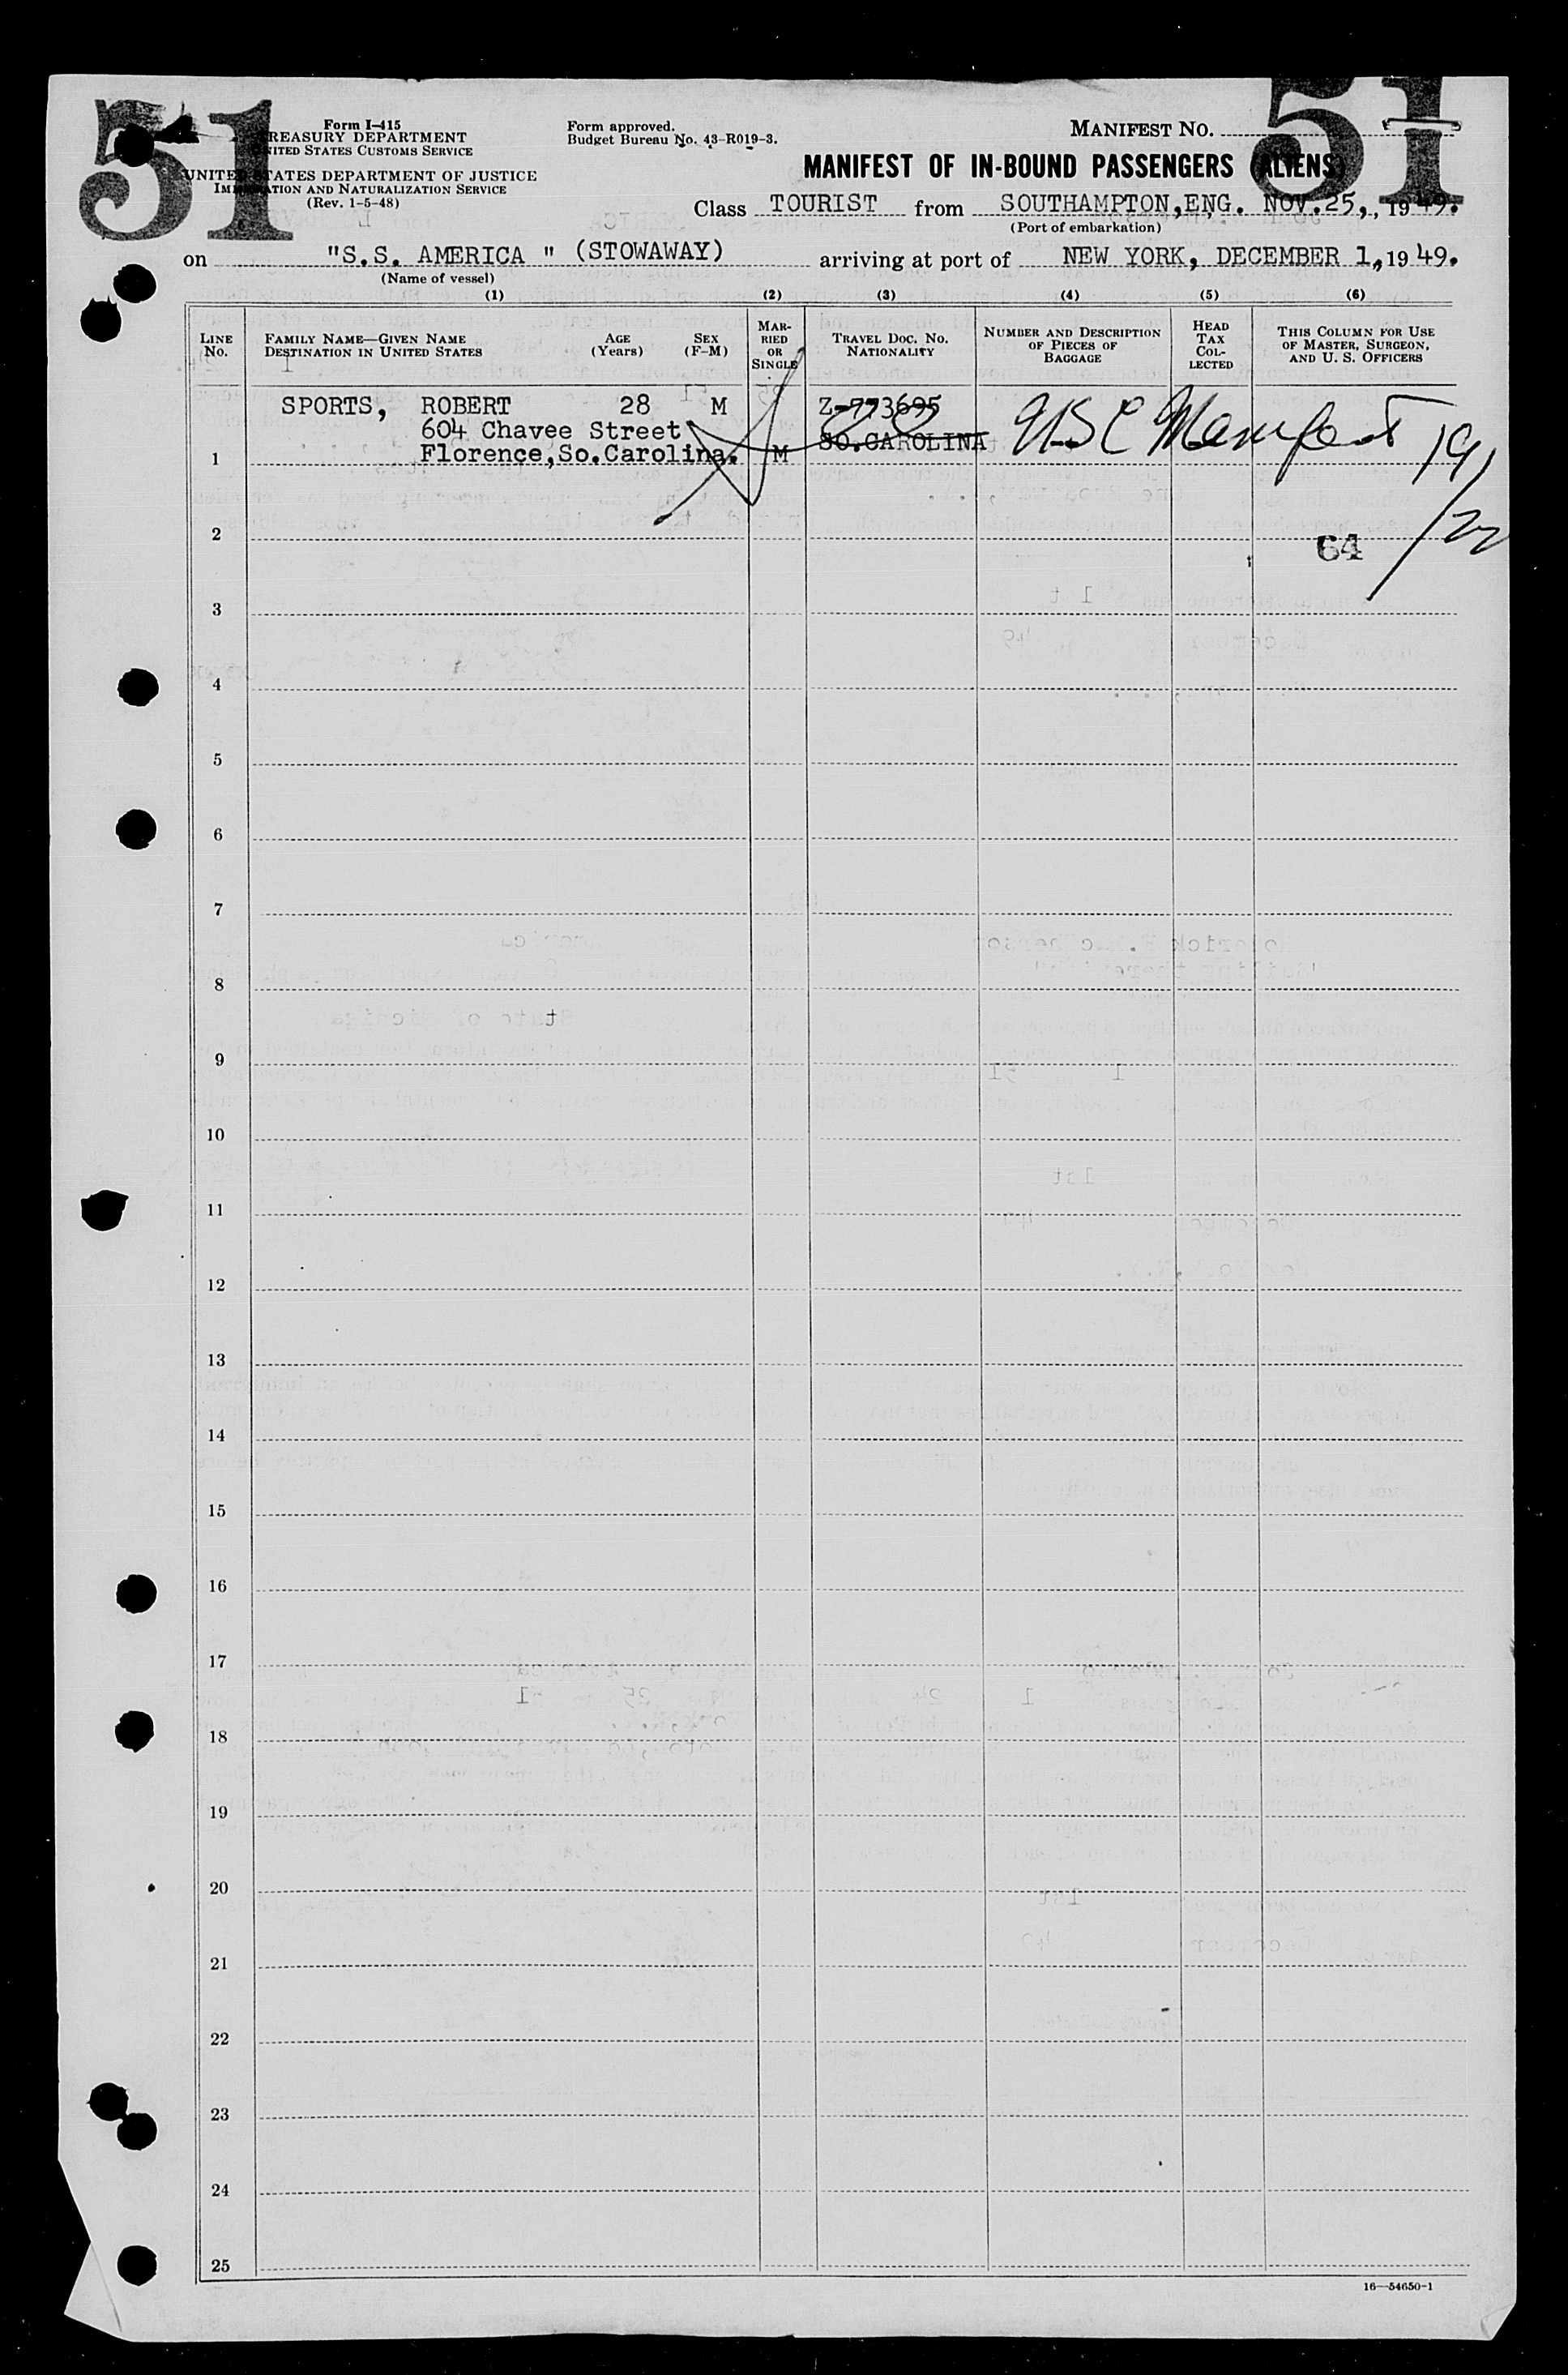 51
51
Form I-415
TREASURY DEPARTMENT
UNITED STATES CUSTOMS SERVICE
UNITED STATES DEPARTMENT OF JUSTICE
IMMIGRATION AND NATURALIZATION SERVICE
(Rev. 1-5-48)
Form approved.
Budget Bureau No. 43-R019-3.
MANIFEST NO.
MANIFEST OF IN-BOUND PASSENGERS (ALIENS)
Class TOURIST from SOUTHAMPTON,ENG. NOV.25,, 1949.
(Port of embarkation)
on "S.S. AMERICA " (STOWAWAY) arriving at port of NEW YORK, DECEMBER 1,, 1949.
(Name of vessel)
(1) (2) (3) (4) (5) (6)
LINE NO.
FAMILY NAME—GIVEN NAME
DESTINATION IN UNITED STATES
AGE (Years)
SEX (F-M)
MARRIED OR SINGLE
TRAVEL DOC. NO. NATIONALITY
NUMBER AND DESCRIPTION OF PIECES OF BAGGAGE
HEAD TAX COLLECTED
THIS COLUMN FOR USE OF MASTER, SURGEON, AND U. S. OFFICERS
SPORTS, ROBERT 28 M Z-773695
604 Chavee Street SO.CAROLINA USC Manifest 191/22
1 Florence,So.Carolina. M
2 64
3
4
5
6
7
8
9
10
11
12
13
14
15
16
17
18
19
20
21
22
23
24
25
16—54650-1